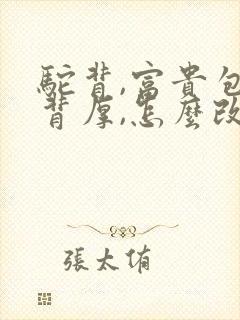 駝背,富貴包
背厚,怎麼改
張太侑